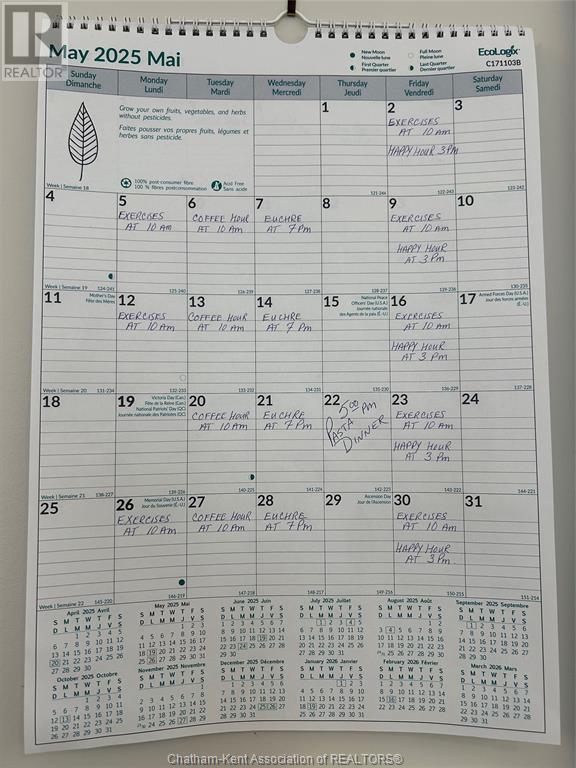 REALTOR®
May 2025 Mai
New Moon
Nouvelle lune
First Quarter
Premier quartier
Full Moon
Pleine lune
Last Quarter
Dernier quartier
EcoLogix
C171103B
Sunday
Dimanche
Monday
Lundi
Tuesday
Mardi
Wednesday
Mercredi
Thursday
Jeudi
Friday
Vendredi
Saturday
Samedi
Grow your own fruits, vegetables, and herbs
without pesticides.
Faites pousser vos propres fruits, légumes et
herbes sans pesticide.
100% post-consumer fibre
100 % fibres postconsommation
Acid Free
Sans acide
Week | Semaine 18
1
121-244
2
EXERCISES
AT 10 Am
HAPPY HOUR 3 PM
122-243
3
123-242
4
Week | Semaine 19
124-241
5
EXERCISES
AT 10 Am
125-240
6
COFFEE HOUR
AT 10 Am
126-239
7
EUCHRE
AT 7 Pm
127-238
8
128-237
9
EXERCISES
AT 10 Am
HAPPY HOUR
AT 3 Pm
129-236
10
130-235
11
Mother's Day
Fête des Mères
Week | Semaine 20
131-234
12
EXERCISES
AT 10 Am
132-233
13
COFFEE HOUR
AT 10 Am
14
EUCHRE
AT 7 Pm
134-231
15
National Peace
Officers' Day (U.S.A.)
Journée nationale
des Agents de la paix (É.-U.)
135-230
16
EXERCISES
AT 10 Am
HAPPY HOUR
AT 3 Pm
136-229
17
Armed Forces Day (U.S.A.)
Jour des forces armées
(É.-U.)
137-228
18
Week | Semaine 21
138-227
19
Victoria Day (Can.)
Fête de la Reine (Can.)
National Patriots' Day (QC)
Journée nationale des Patriotes (QC)
139-226
20
COFFEE HOUR
AT 10 Am
140-225
21
EUCHRE
AT 7 Pm
141-224
22
5:00 PM
PASTA
DINNER
142-223
23
EXERCISES
AT 10 Am
HAPPY HOUR
AT 3 Pm
143-222
24
144-221
25
Week | Semaine 22
145-220
26
Memorial Day (U.S.A.)
Jour du Souvenir (É.-U.)
EXERCISES
AT 10 Am
146-219
27
COFFEE HOUR
AT 10 Am
147-218
28
EUCHRE
AT 7 Pm
148-217
29
Ascension Day
Jour de l'Ascension
149-216
30
EXERCISES
AT 10 Am
HAPPY HOUR
AT 3 Pm
150-215
31
151-214
April 2025 Avril
May 2025 Mai
June 2025 Juin
July 2025 Juillet
August 2025 Août
September 2025 Septembre
October 2025 Octobre
November 2025 Novembre
December 2025 Décembre
January 2026 Janvier
February 2026 Février
March 2026 Mars
Chatham-Kent Association of REALTORS®